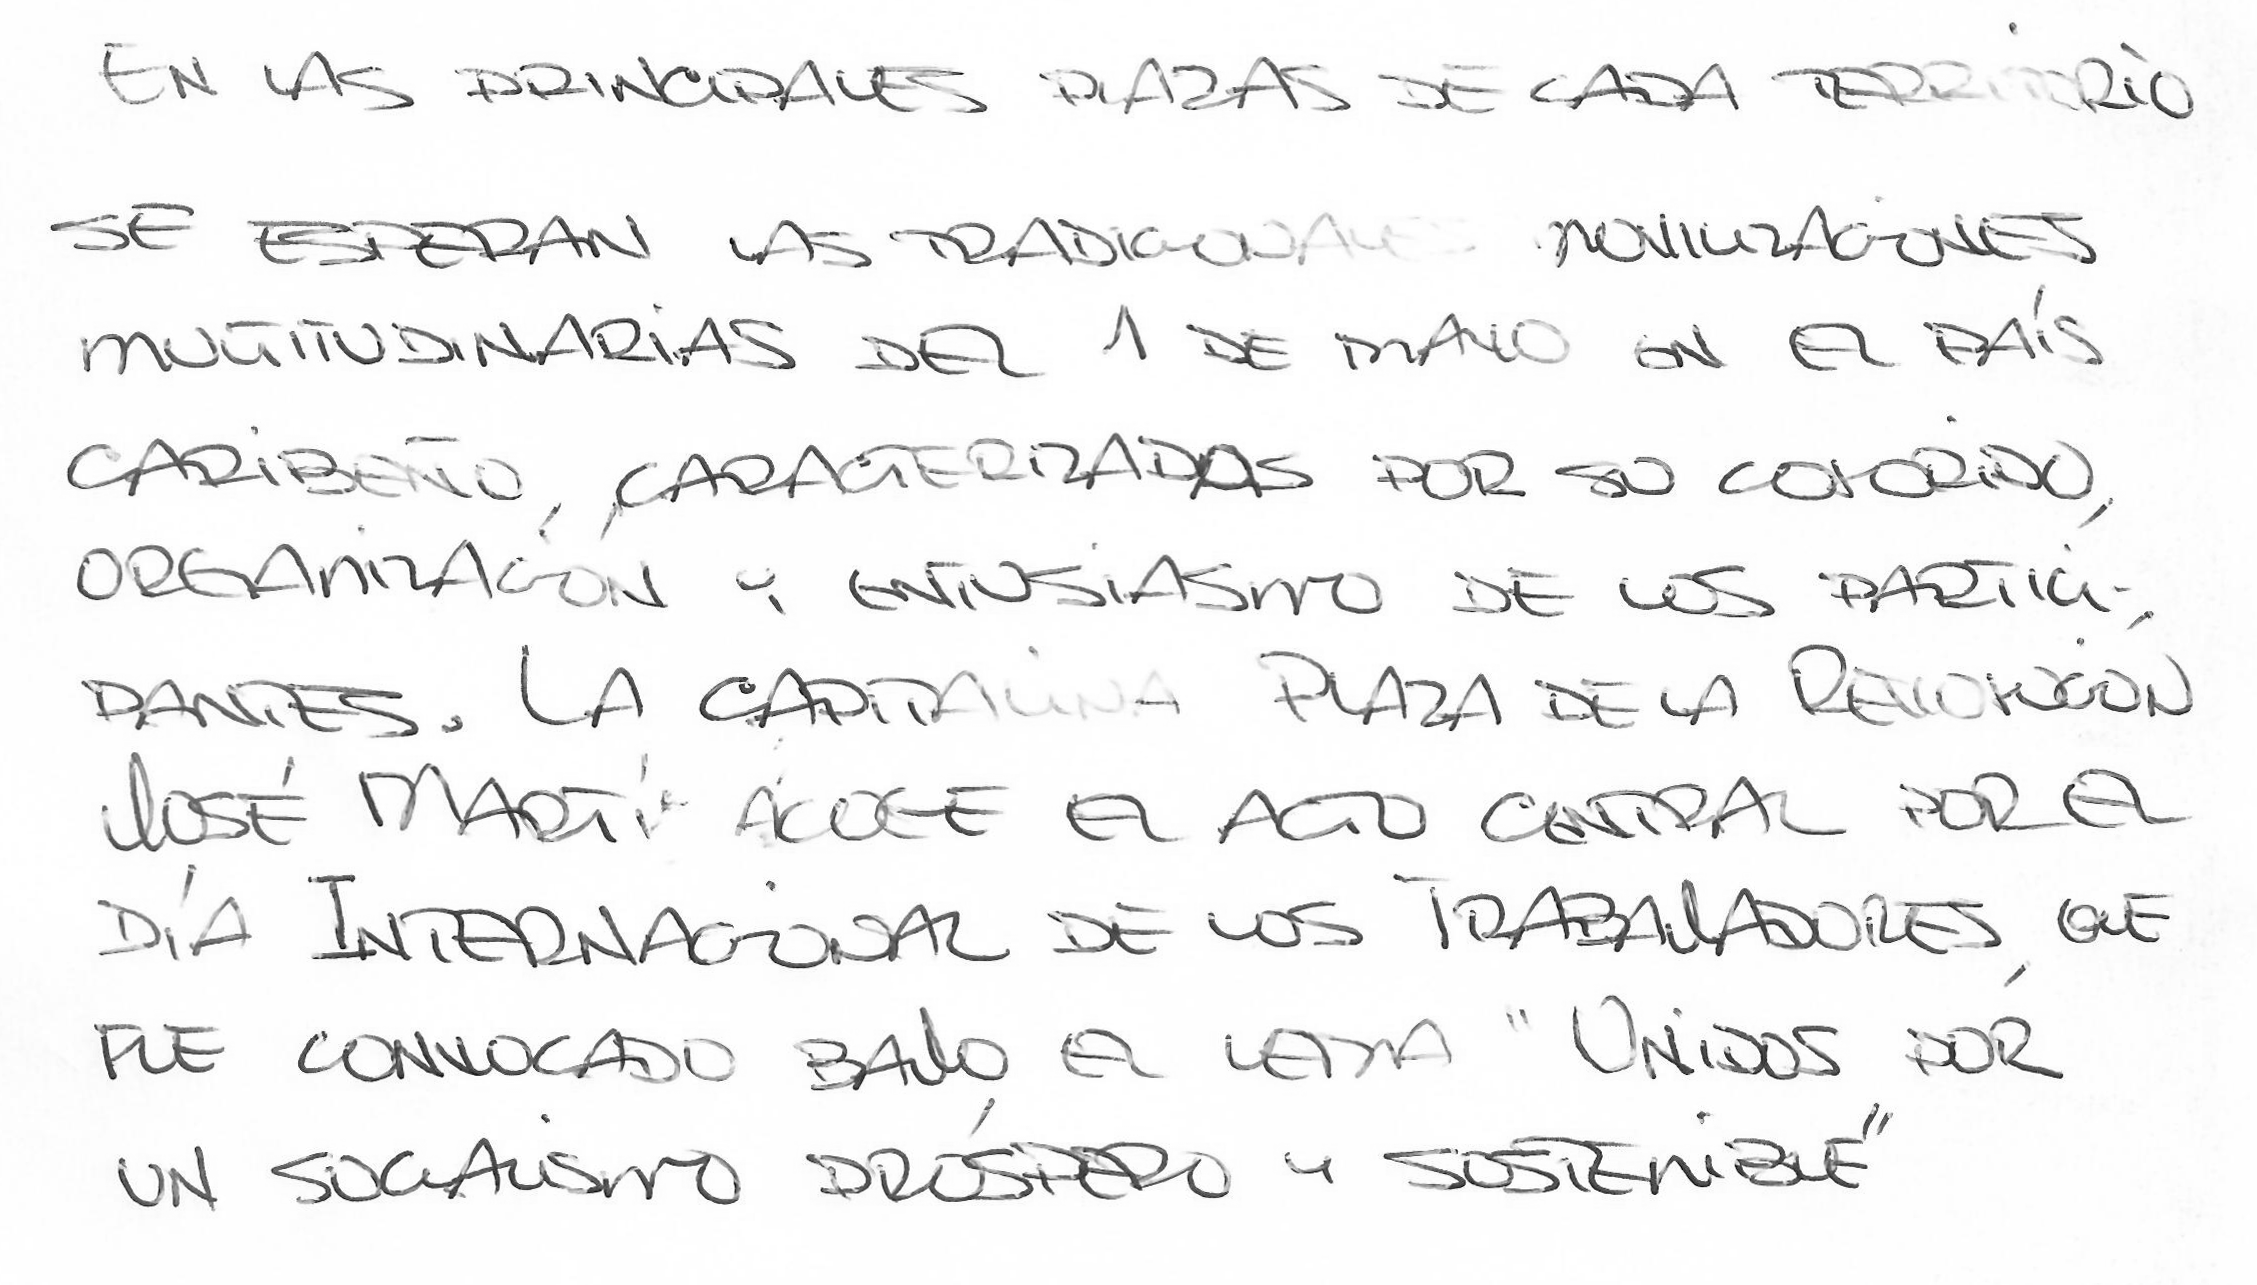 EN LAS PRINCIPALES PLAZAS DE CADA TERRITORIO
SE ESPERAN LAS TRADICIONALES MOVILIZACIONES
MULTITUDINARIAS DEL 1 DE MAYO EN EL PAÍS
CARIBEÑO, CARACTERIZADAS POR SU COLORIDO,
ORGANIZACIÓN Y ENTUSIASMO DE LOS PARTICI-
PANTES. LA CAPITALINA PLAZA DE LA REVOLUCIÓN
JOSÉ MARTÍ ACOGE EL ACTO CENTRAL POR EL
DÍA INTERNACIONAL DE LOS TRABAJADORES, QUE
FUE CONVOCADO BAJO EL LEMA "UNIDOS POR
UN SOCIALISMO PRÓSPERO Y SOSTENIBLE"